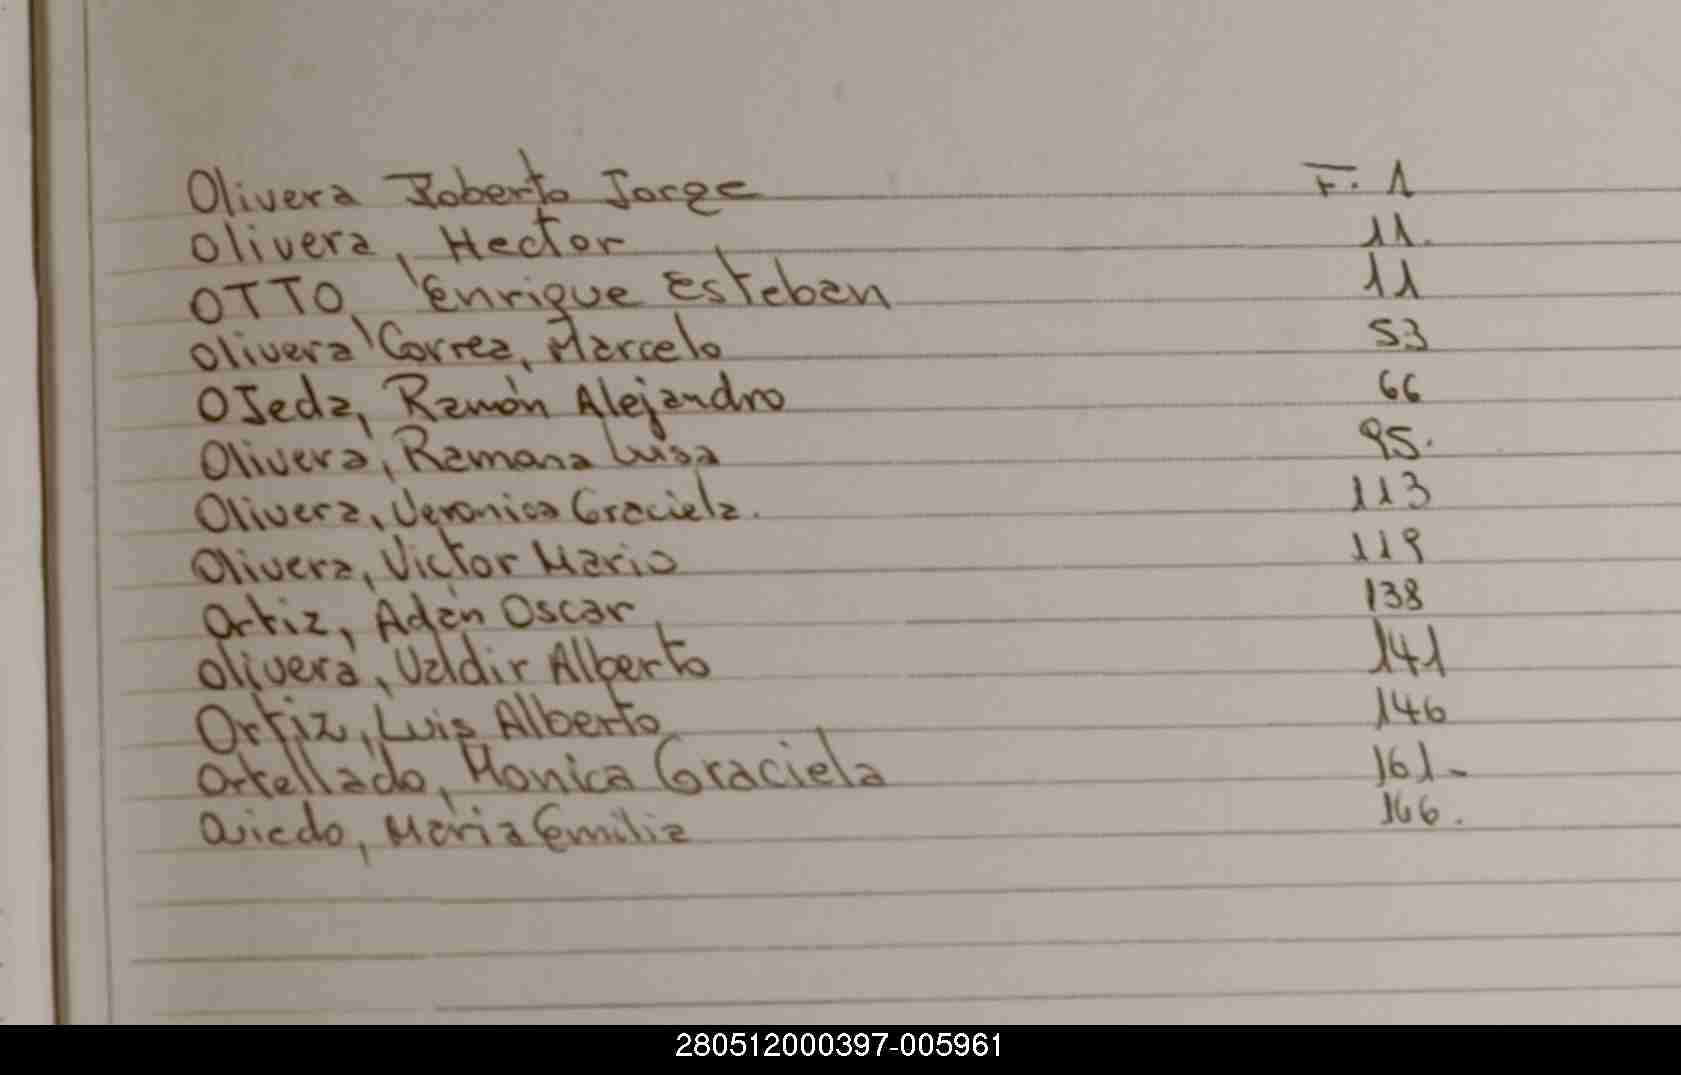 Olivera Roberto Jorge F. 1
Olivera, Hector 11.
OTTO, Enrique Esteban 11
Olivera Correa, Marcelo 53
OJeda, Ramón Alejandro 66
Olivera, Ramona Luisa 95.
Olivera, Veronica Graciela. 113
Olivera, Victor Mario 119
Ortiz, Adán Oscar 138
Olivera, Valdir Alberto 141
Ortiz, Luis Alberto 146
Ortellado, Monica Graciela 161-
Oviedo, Maria Emilia 166.
280512000397-005961